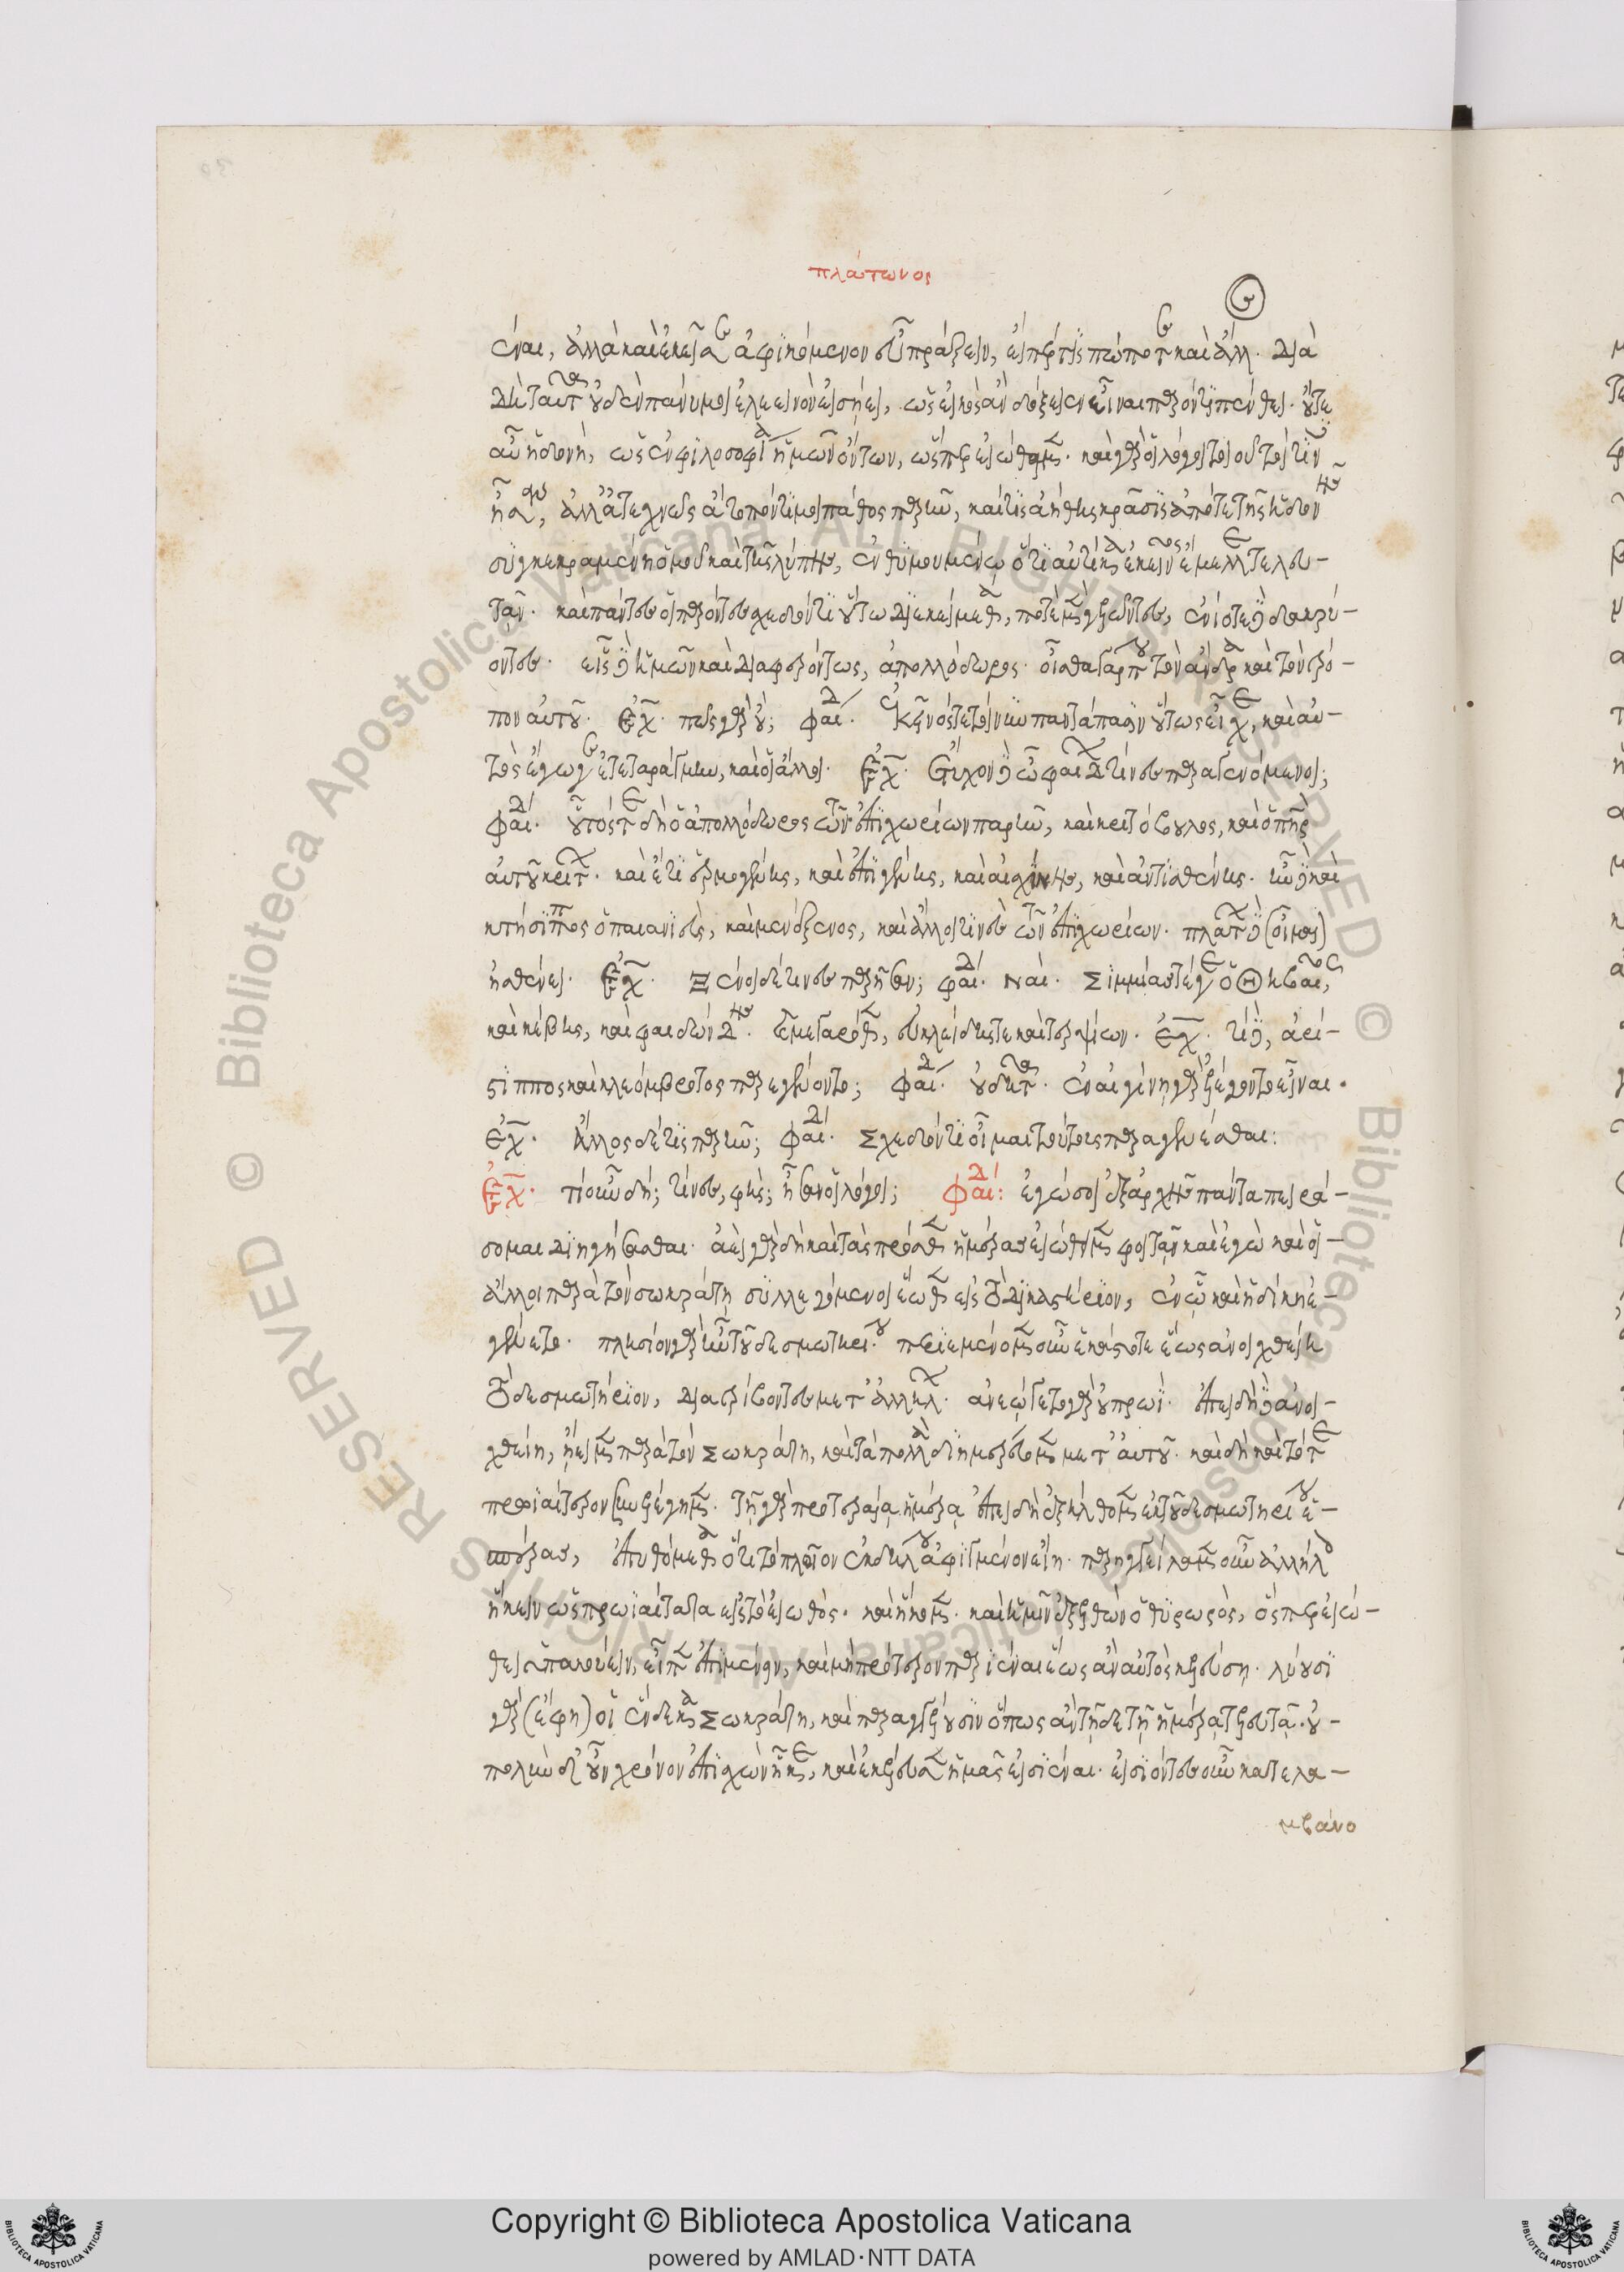 πλάτωνος
ϊέναι, ἀλλὰ καὶ ἐκεῖσε ἀφικόμενον εὖ πράξειν, εἴπερ τις πώποτε καὶ ἄλλος. διὰ
δὴ ταῦτα οὐδὲν πάνυ μοι ἐλεεινὸν εἰσῄει, ὡς εἰκὸς ἂν δόξειεν εἶναι παρόντι πένθει. οὔτε
αὖ ἡδονὴ, ὡς ἐν φιλοσοφίᾳ ἡμῶν ὄντων, ὥσπερ εἰώθειμεν. καὶ γὰρ οἱ λόγοι τοιοῦτοί τινες
ἦσαν, ἀλλ' ἀτεχνῶς ἄτοπόν τί μοι πάθος παρῆν, καί τις ἀήθης κρᾶσις ἀπό τε τῆς ἡδονῆς
συγκεκραμένη ὁμοῦ καὶ τῆς λύπης, ἐνθυμουμένῳ ὅτι αὐτίκα ἐκεῖνος ἔμελλε τελευ-
τᾶν. καὶ πάντες οἱ παρόντες σχεδόν τι οὕτω διεκείμεθα, ποτὲ μὲν γελῶντες, ἐνίοτε δὲ δακρύ-
οντες. εἷς δὲ ἡμῶν καὶ διαφερόντως, ἀπολλόδωρος. οἶσθα γάρ που τὸν ἄνδρα καὶ τὸν τρό-
πον αὐτοῦ. Ἐχ. πῶς γὰρ οὔ; φαίδ. Ἐκεῖνός τε τοίνυν παντάπασιν οὕτως εἶχε, καὶ αὐ-
τὸς ἔγωγε ἐτεταράγμην, καὶ οἱ ἄλλοι. Ἐχ. Ἔτυχον δὲ ὦ φαίδων τίνες παραγενόμενοι;
φαίδ. οὗτός τε δὴ ὁ ἀπολλόδωρος τῶν ἐπιχωρίων παρῆν, καὶ κριτόβουλος, καὶ ὁ πατὴρ
αὐτοῦ κρίτων. καὶ ἔτι ἑρμογένης, καὶ ἐπιγένης, καὶ αἰσχίνης, καὶ ἀντισθένης. ἦν δὲ καὶ
κτήσιππος ὁ παιανιεὺς, καὶ μενέξενος, καὶ ἄλλοι τινὲς τῶν ἐπιχωρίων. πλάτων δὲ (οἶμαι)
ἠσθένει. Ἐχ. Ξένοι δέ τινες παρῆσαν; φαίδ. Ναί. Σιμμίας τέ γε ὁ Θηβαῖος,
καὶ κέβης, καὶ φαιδώνδης. καὶ μεγαρόθεν, εὐκλείδης τε καὶ τερψίων. Ἐχ. τί δὲ, ἀρί-
στιππος καὶ κλεόμβροτος παρεγένοντο; φαίδ. οὐ δῆτα. ἐν αἰγίνῃ γὰρ ἐλέγοντο εἶναι.
Ἐχ. Ἄλλος δέ τις παρῆν; φαίδ. Σχεδόν τι οἶμαι τούτους παραγενέσθαι:
Ἐχ. τί οὖν δή; τίνες, φῂς; ἦσαν οἱ λόγοι; φαίδ: ἐγώ σοι ἐξ ἀρχῆς πάντα πειρά-
σομαι διηγήσασθαι. ἀεὶ γὰρ δὴ καὶ τὰς πρόσθεν ἡμέρας εἰώθειμεν φοιτᾶν καὶ ἐγὼ καὶ οἱ
ἄλλοι παρὰ τὸν σωκράτη συλλεγόμενοι ἕωθεν εἰς τὸ δικαστήριον, ἐν ᾧ καὶ ἡ δίκη ἐ-
γένετο. πλησίον γὰρ ἦν τοῦ δεσμωτηρίου. περιεμένομεν οὖν ἑκάστοτε ἕως ἀνοιχθείη
τὸ δεσμωτήριον, διατρίβοντες μετ' ἀλλήλων. ἀνεῴγετο γὰρ οὐ πρωΐ. ἐπειδὴ δὲ ἀνοι-
χθείη, ᾔειμεν παρὰ τὸν Σωκράτη, καὶ τὰ πολλὰ διημερεύομεν μετ' αὐτοῦ. καὶ δὴ καὶ τότε
πρωϊαίτερον ξυνελέγημεν. τῇ γὰρ προτεραίᾳ ἡμέρᾳ ἐπειδὴ ἐξήλθομεν ἐκ τοῦ δεσμωτηρίου ἑ-
σπέρας, ἐπυθόμεθα ὅτι τὸ πλοῖον ἐκ δήλου ἀφιγμένον εἴη. παρηγγείλαμεν οὖν ἀλλήλοις
ἥκειν ὡς πρωϊαίτατα εἰς τὸ εἰωθός. καὶ ἥκομεν. καὶ ἡμῖν ἐξελθὼν ὁ θυρωρὸς, ὅσπερ εἰώ-
θει ὑπακούειν, εἶπεν ἐπιμένειν, καὶ μὴ πρότερον παριέναι ἕως ἂν αὐτὸς κελεύσῃ. λύουσι
γὰρ (ἔφη) οἱ ἕνδεκα Σωκράτη, καὶ παραγγέλλουσιν ὅπως ἂν τῇδε τῇ ἡμέρᾳ τελευτᾷ. οὐ
πολὺν δ' οὖν χρόνον ἐπισχὼν ἧκε, καὶ ἐκέλευσεν ἡμᾶς εἰσιέναι. εἰσιόντες οὖν κατελα-
μβάνο
Copyright © Biblioteca Apostolica Vaticana
powered by AMLAD·NTT DATA